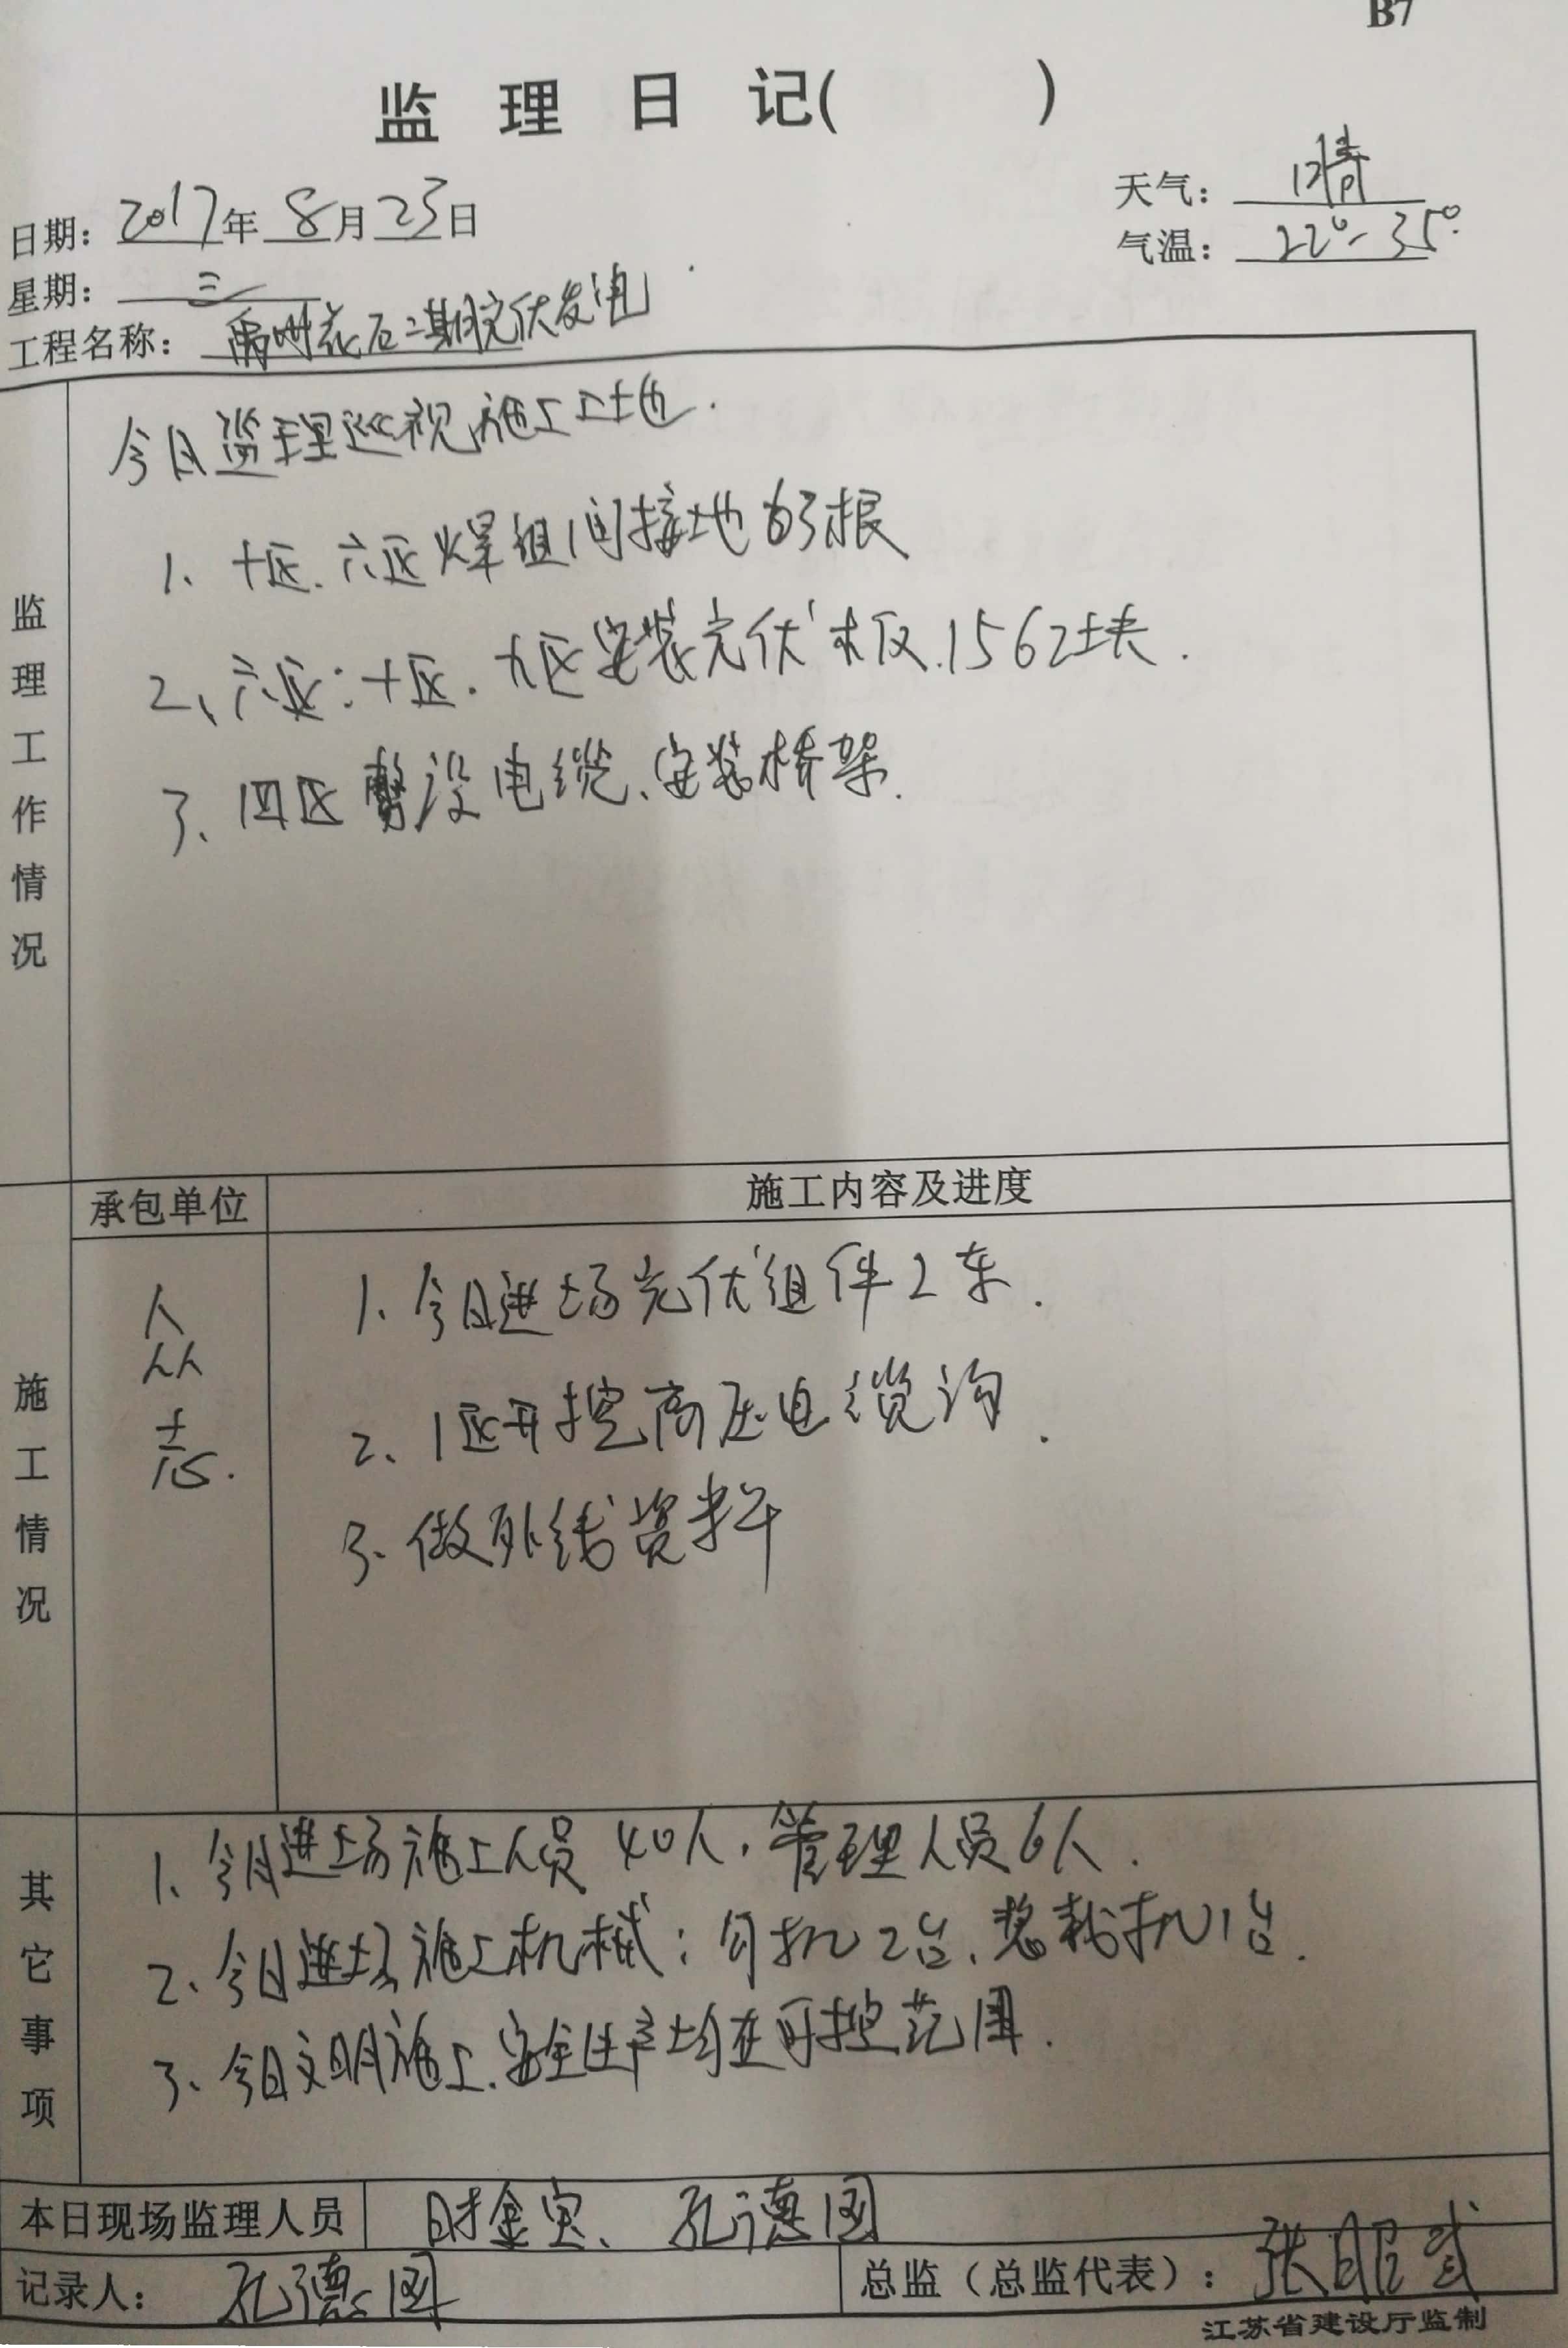 B7
监 理 日 记( )
日期: 2017年 8月23日
天气: 晴
气温: 22°-35°
星期: 三
工程名称: 禹州花石二期光伏发电
监理工作情况
今日监理巡视施工工地.
1、十区.六区焊组间接地 根
2、六区;十区.九区安装光伏板.1562块.
3、四区 设电缆、安装桥架.
施工情况
承包单位
施工内容及进度
人众志.
1、今日进场光伏组件2车.
2、1区开挖高压电缆沟.
3、做外线资料
其它事项
1、今日进场施工人员40人,管理人员6人.
2、今日进场施工机械:勾机2台、 机1台.
3、今日文明施工.安全生产均在可控范围.
本日现场监理人员 时金宝、孔德图
记录人: 孔德图
总监（总监代表）: 张昭武
江苏省建设厅监制